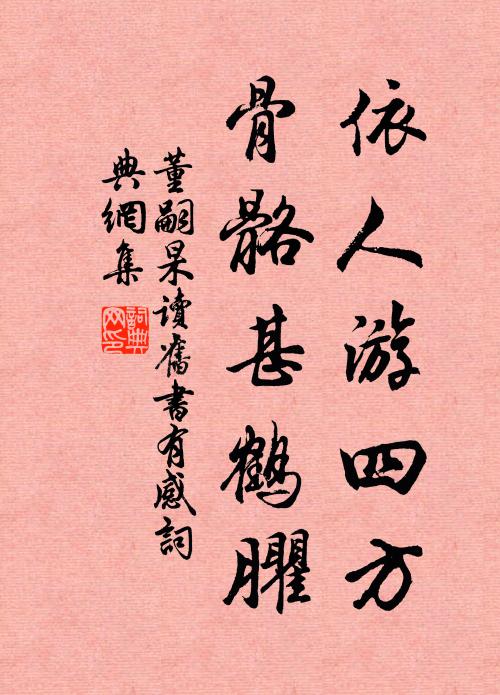 依人游四方
骨骼甚鶴臞
董嗣杲讀舊書有感詞
典網集
詞典
网印